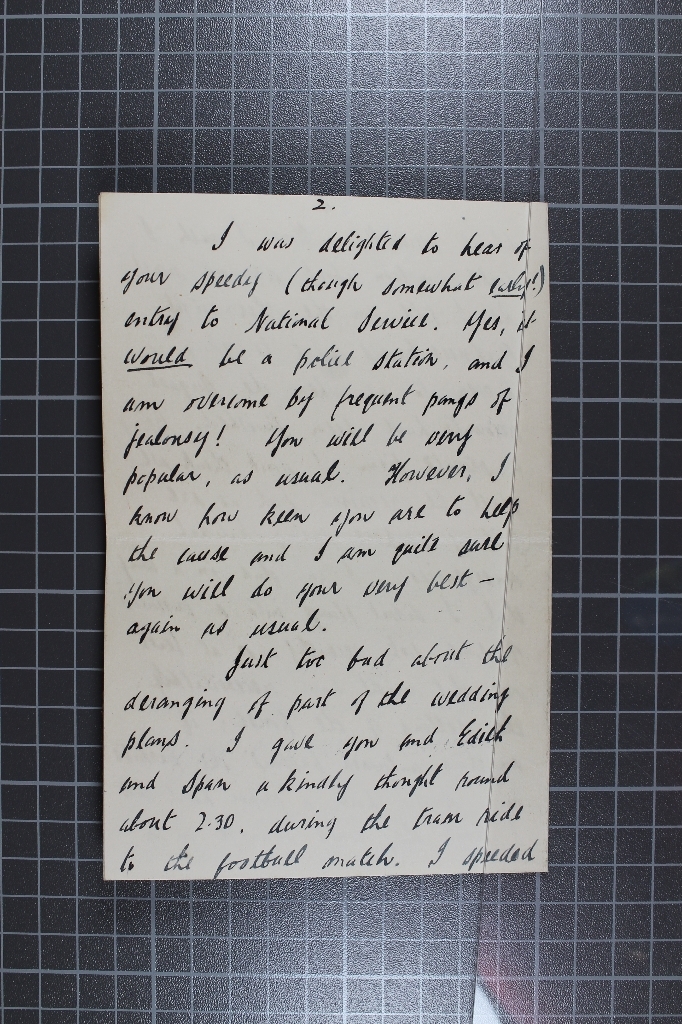 2.
I was delighted to hear of
your speedy (though somewhat early!)
entry to National Service. Yes, it
would be a police station, and I
am overcome by frequent pangs of
jealousy! You will be very
popular, as usual. However, I
know how keen you are to help
the cause and I am quite sure
you will do your very best —
again as usual.
Just too bad about the
deranging of part of the wedding
plans. I gave you and Edith
and Span a kindly thought round
about 2.30, during the tram ride
to the football match. I speeded